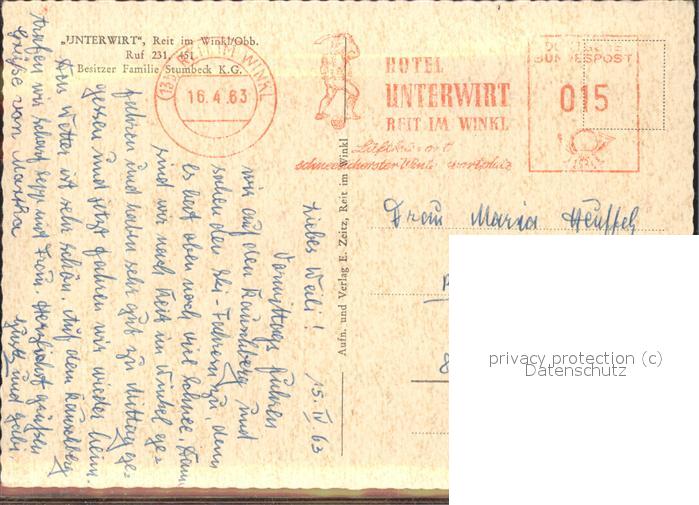 „UNTERWIRT“, Reit im Winkl/Obb.
Ruf 231, 451
Besitzer Familie Stumbeck K.G.
REIT IM WINKL
16.4.63
HOTEL
UNTERWIRT
REIT IM WINKL
Luftkurort
schneesichersten Wintersportplatz
DEUTSCHE
BUNDESPOST
015
Aufn. und Verlag E. Zeitz, Reit im Winkl
Frau Maria
15. IV 63
Liebes Weili!
Vormittags fuhren
wir auf den Rauschberg und
sahen den Ski-Fahrern zu denn
es hat oben noch viel Schnee. Dann
sind wir nach Reit im Winkel ge=
fahren und haben sehr gut zu Mittag ge=
gessen und jetzt fahren wir wieder heim.
Das Wetter ist sehr schön. Auf dem Rauschberg
trafen wir Sepp und Frau. Herzlichst grüßen
und
Grüße von Martha
privacy protection (c)
Datenschutz